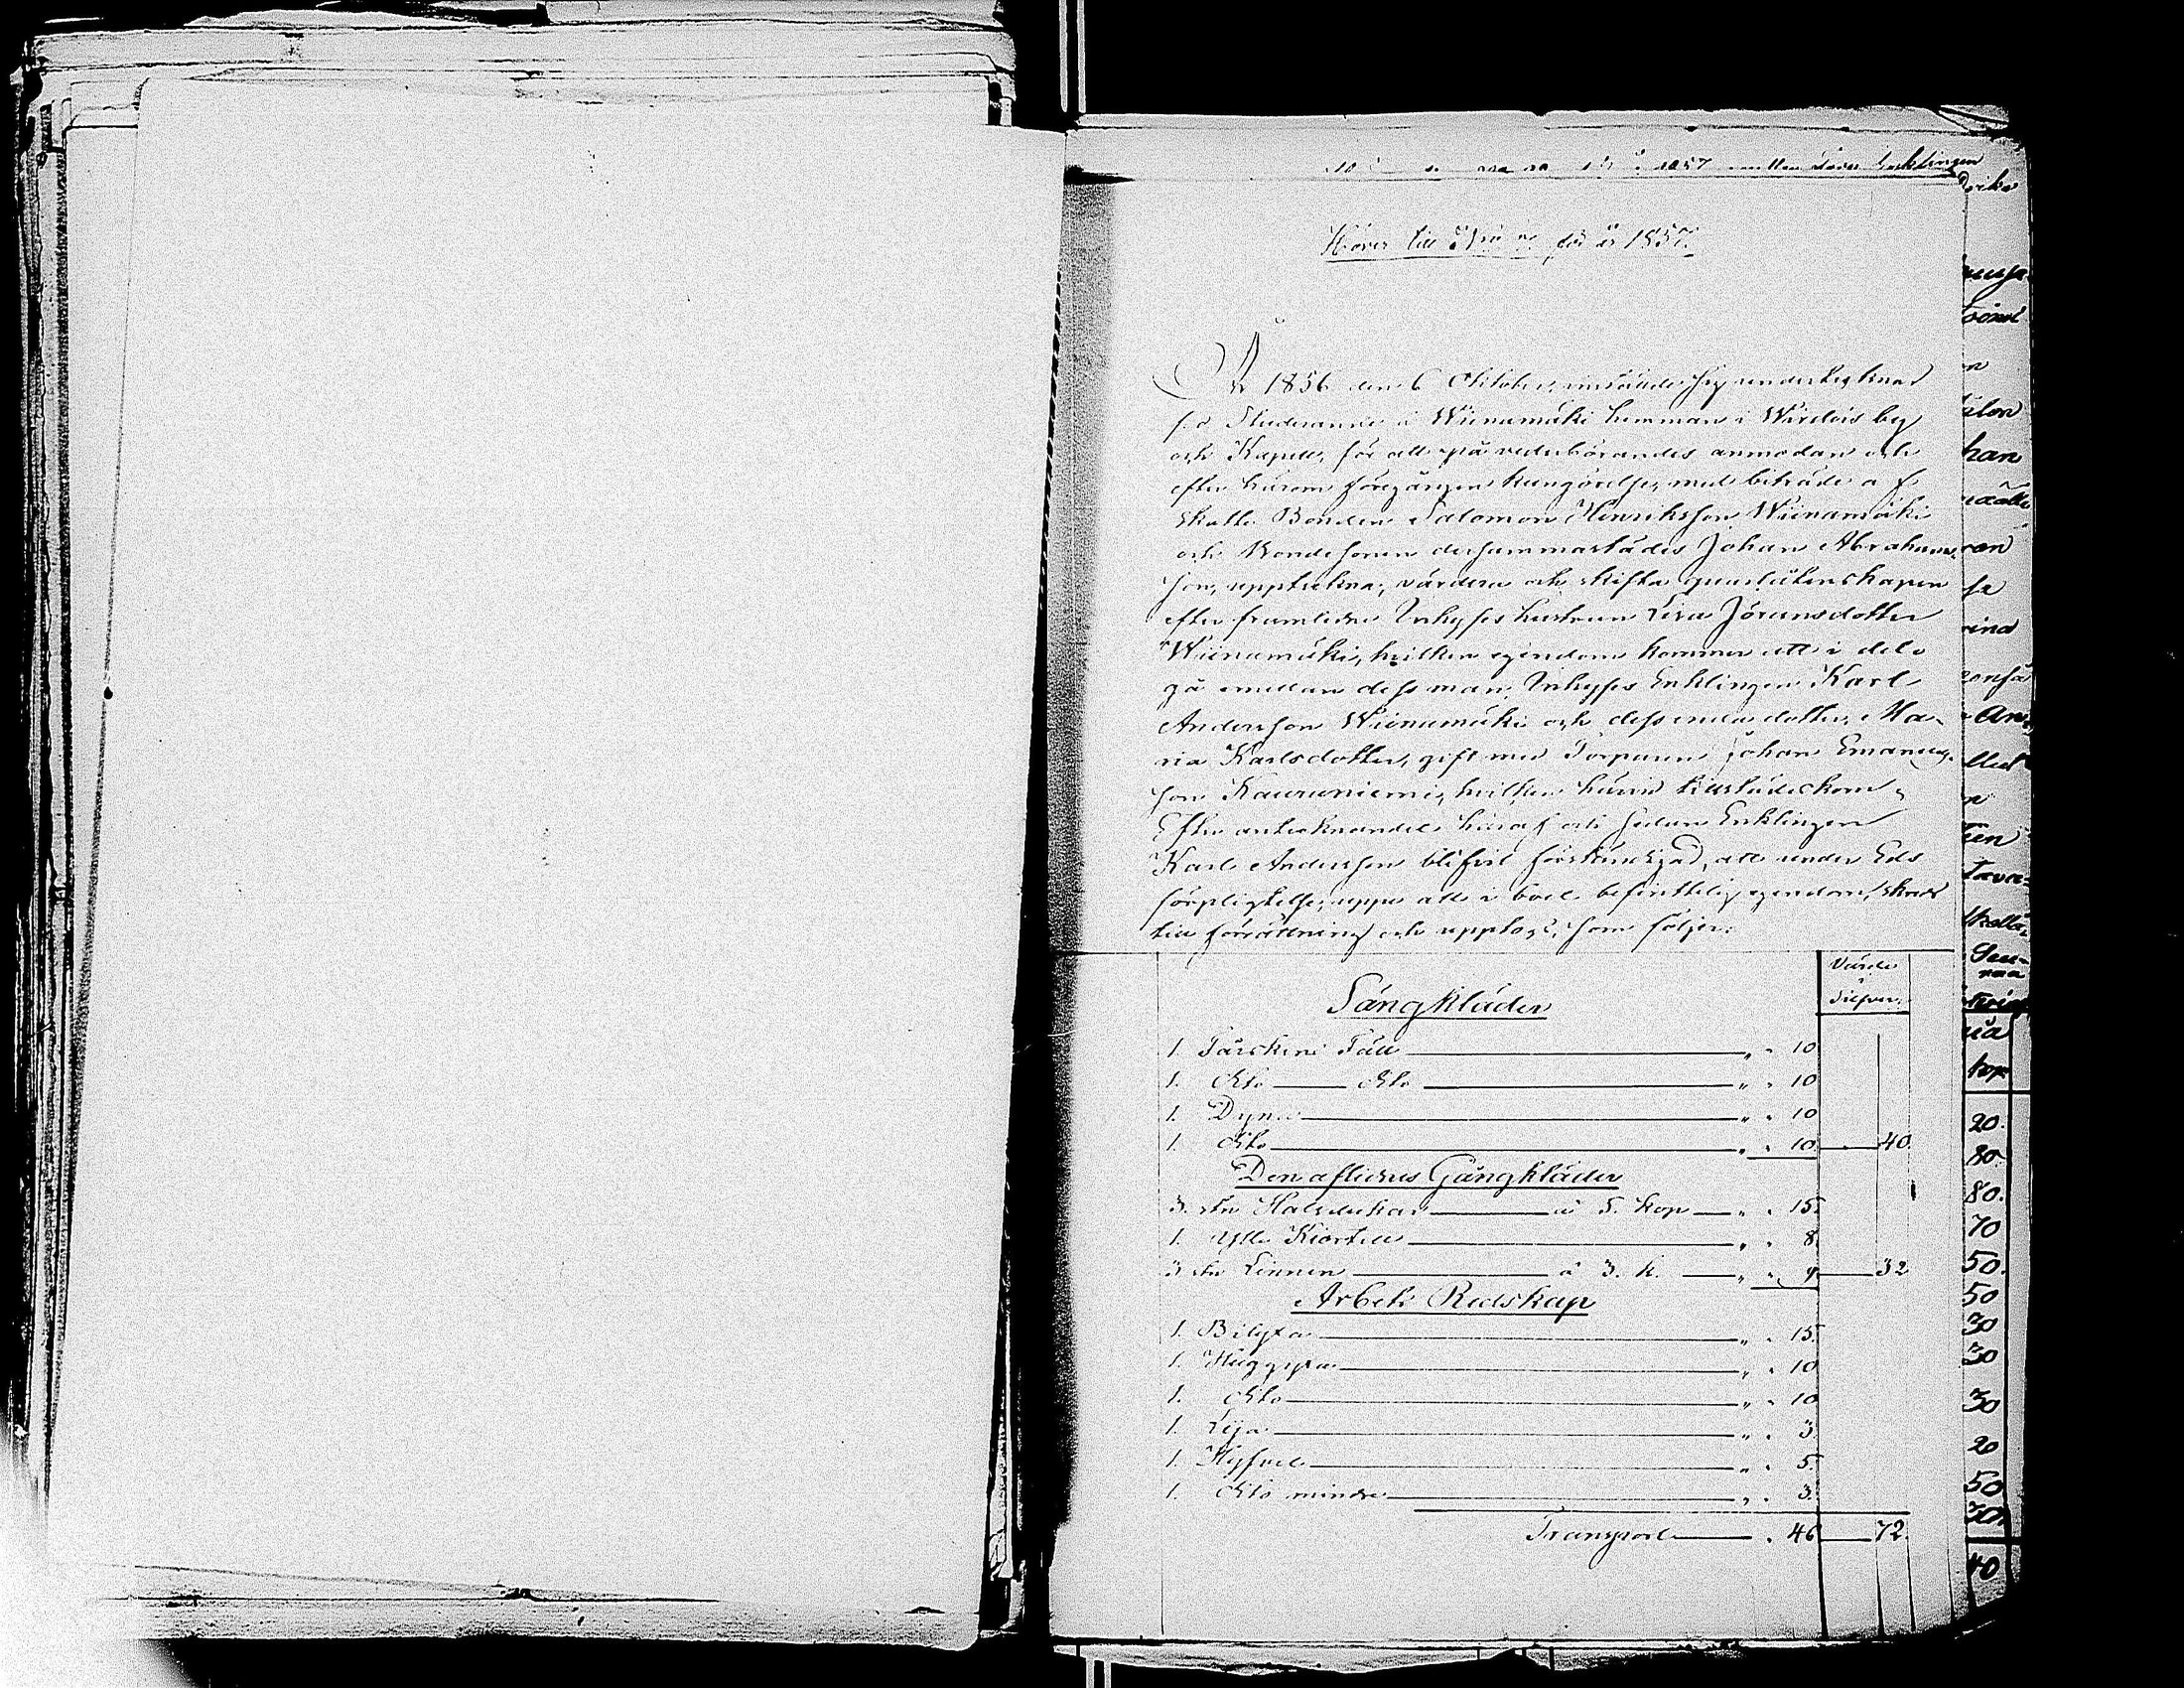 1857 Enklingen
Hörer till № för år 1857.
År 1856 den 6 Oktober, infände sig undertecknad
f. d. Studerande å Wiinamäki hemman i Wirdois by
och Kapell, för att på vederbörandes anmodan och
efter härom föregången kungörelse, med biträde af
Skatte Bonden Salomon Henriksson Wiinamäki
och Bondesonen dersammastädes Johan Abrahams-
son, uppteckna, värdera och skifta quarlåtenskapen
efter framlidne Inhyses hustrun Lisa Jöransdotter
Wiinamäki, hvilken egendom kommer att i del
gå emellan dess man, Inhyses Enklingen Karl
Andersson Wiinamäki och dess enda dotter, Ma-
ria Karlsdotter, gift med Torparen Johan Emanuels-
son Kauruniemi, hvilken härvid tillstädeskom.
Efter antecknandet häraf och sedan Enklingen
Karl Andersson blifvit förständigad, att under Eds
förpligtelse, uppe all i boet befinttelig egendom, skreds
till förrättning och upptogs, som följer:
Värde
Silfver.
Sängkläder
1. Fårskins Fäll " " 10
1. dito dito " " 10
1. Dyna " " 10
1. dito " " 10 40
Den aflidnes Gångkläder
3. st. Halsdukar à 5. kop " " 15.
1. ylle Kiortel " " 8
3 st. Linnen à 3. k. " " 9 32
Arbets Redskap
1. Bilyxa " " 15
1. Huggyxa " " 10
1. dito " " 10
1. Lija " " 3
1. Hyfvel " " 5.
1. dito mindre " " 3
Transport " 46 72.
han
kop
20.
80.
80.
70
50.
50
30
30
30
20
50
40